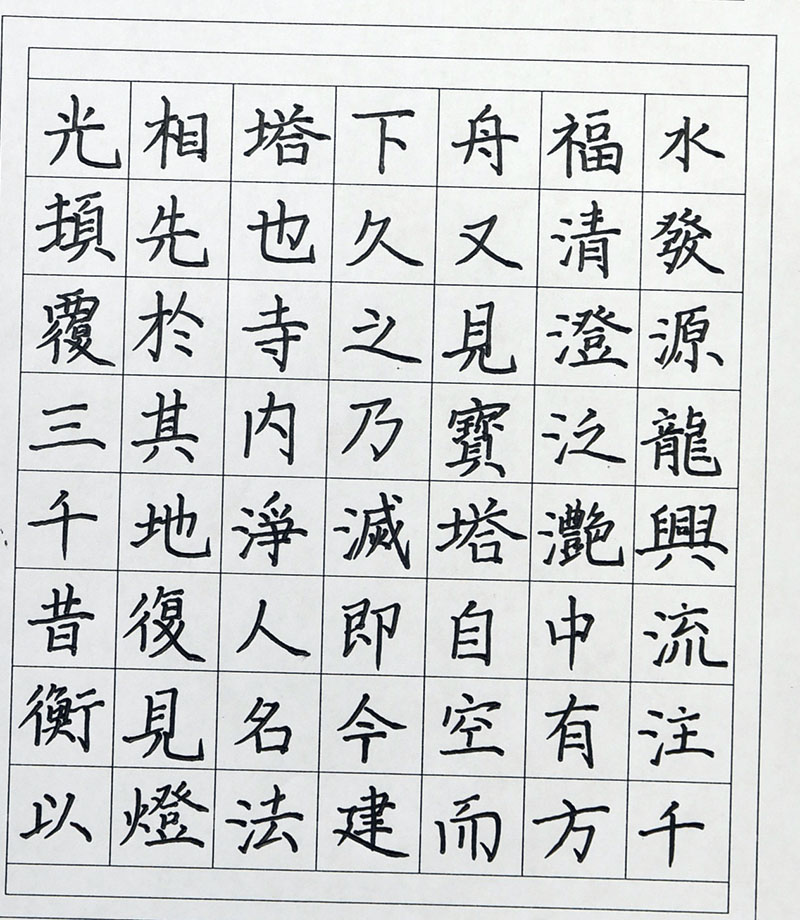 水發源龍興流注千
福清澄泛灧中有方
舟又見寶塔自空而
下久之乃滅即今建
塔也寺内淨人名法
相先於其地復見燈
光遍覆三千昔衡以